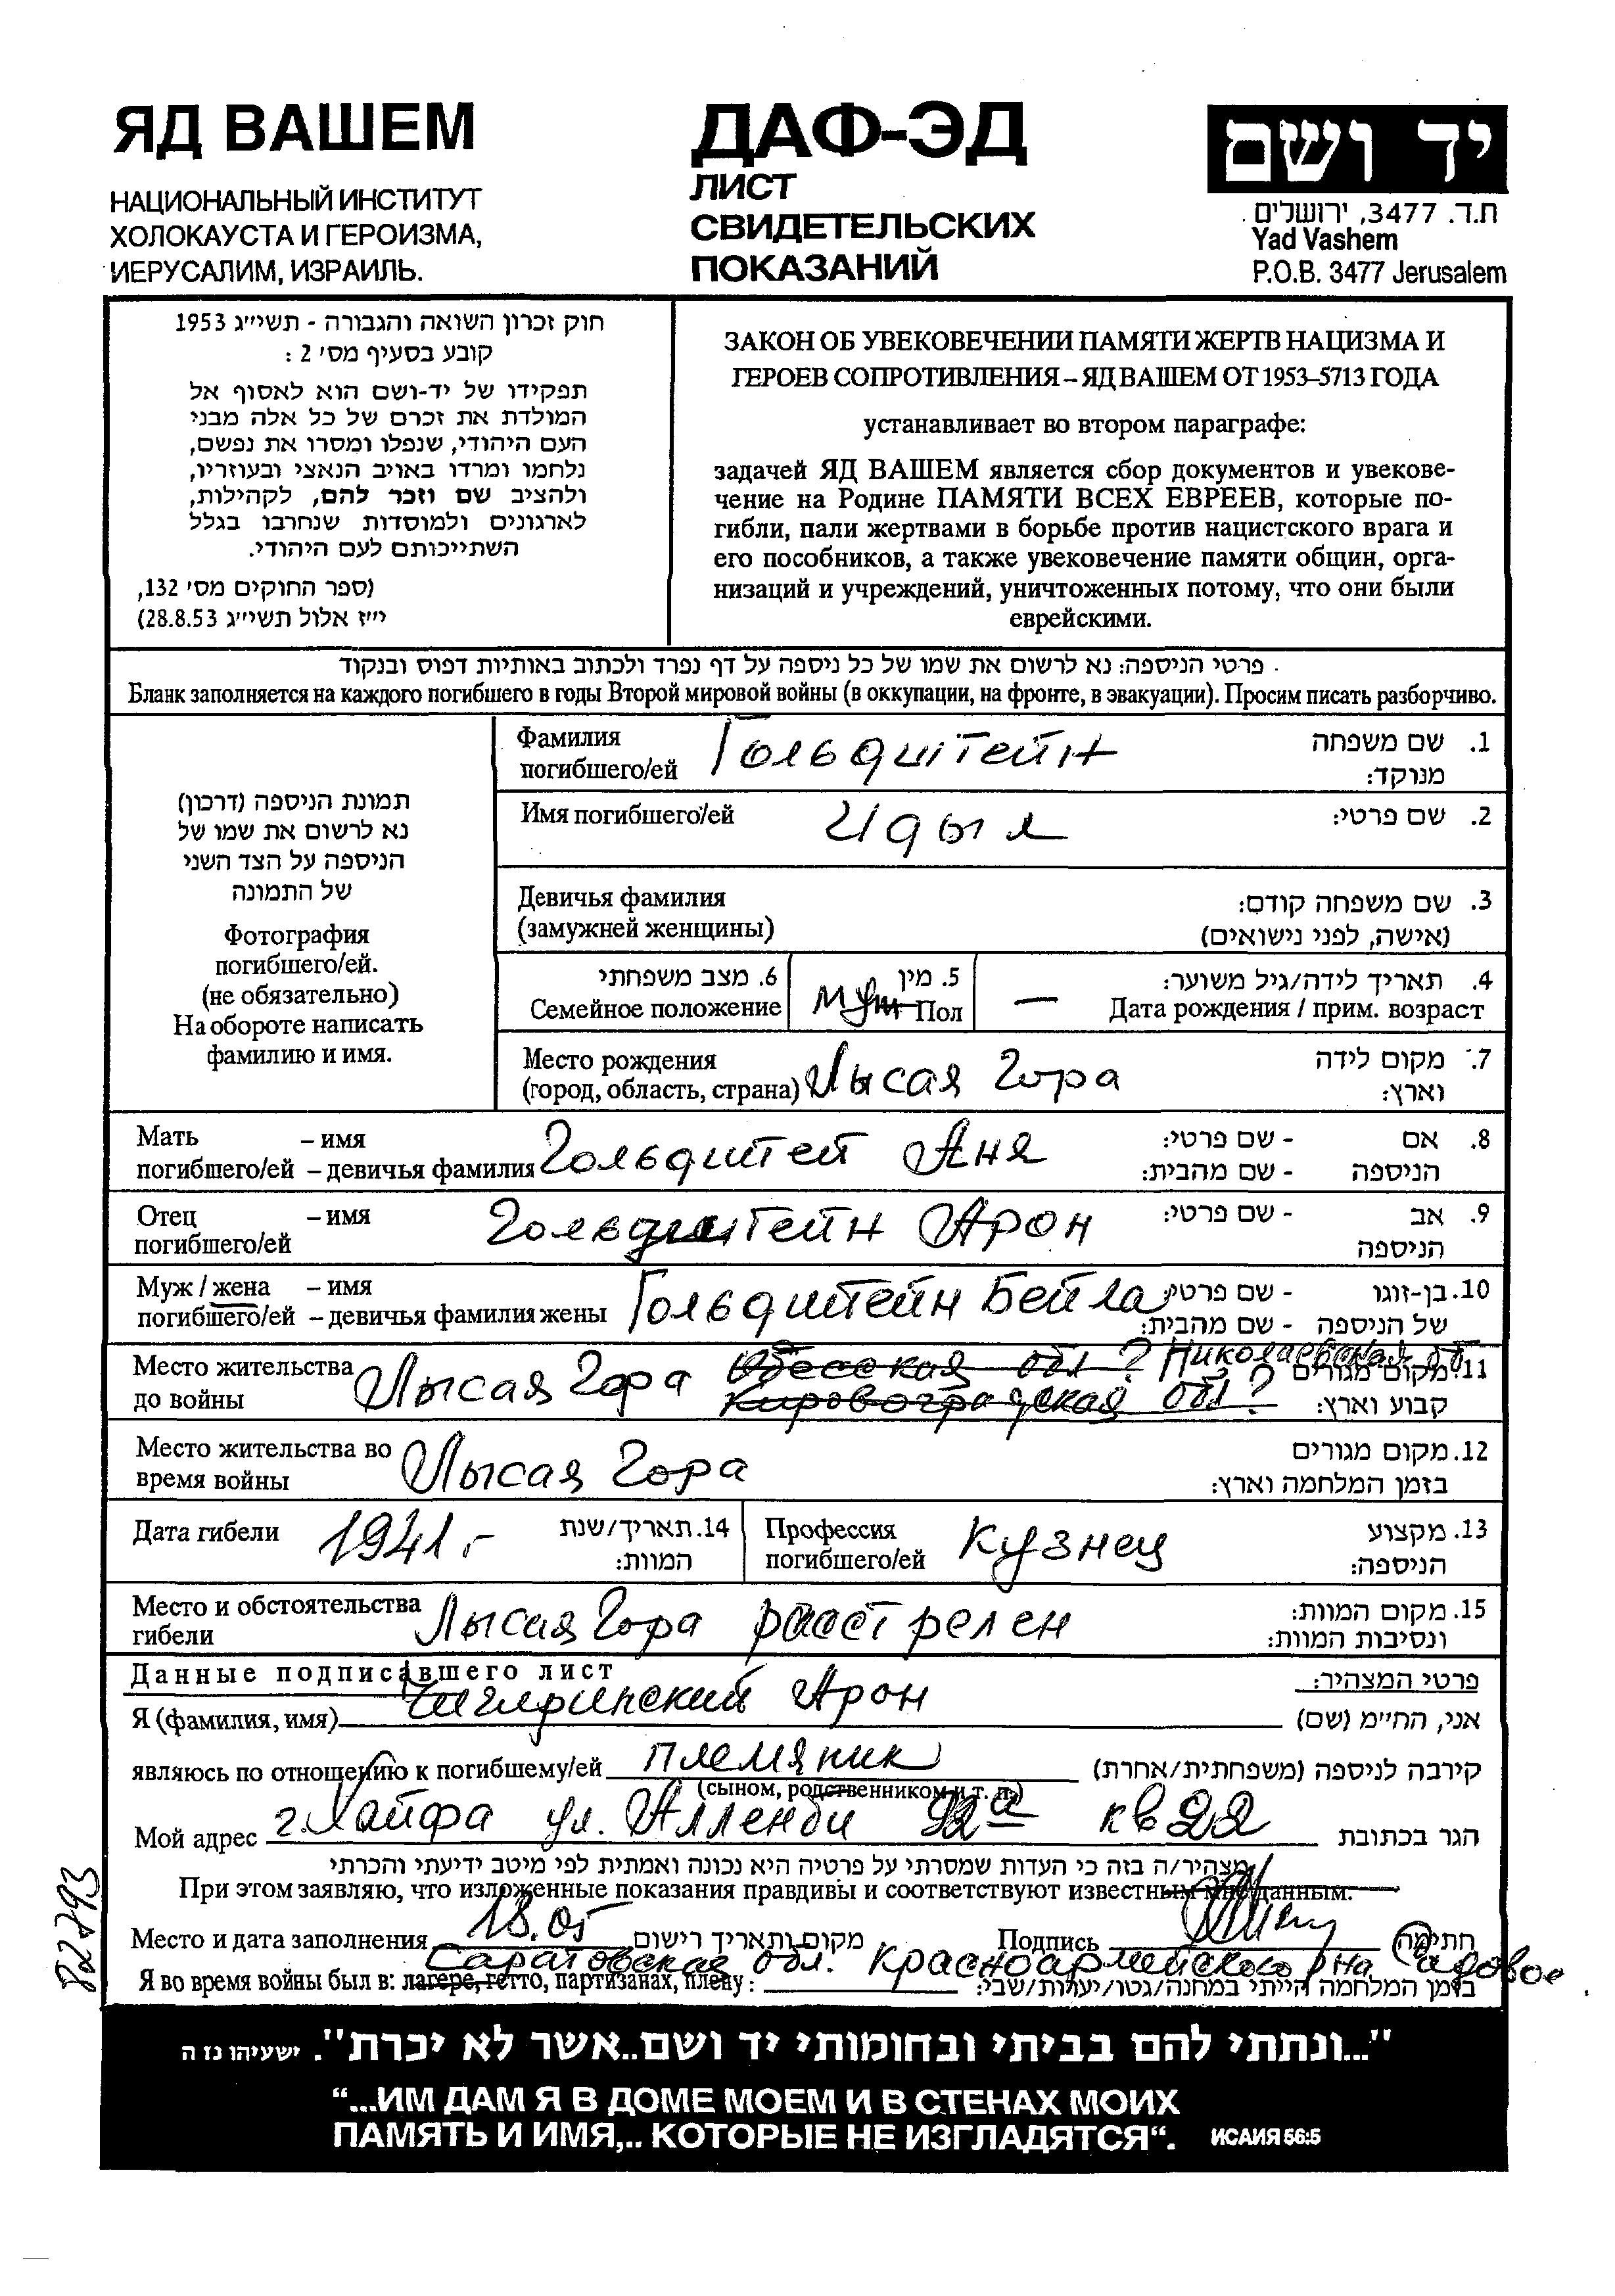 ЯД ВАШЕМ
НАЦИОНАЛЬНЫЙ ИНСТИТУТ
ХОЛОКАУСТА И ГЕРОИЗМА,
ИЕРУСАЛИМ, ИЗРАИЛЬ.
ДАФ-ЭД
ЛИСТ
СВИДЕТЕЛЬСКИХ
ПОКАЗАНИЙ
יד ושם
ת.ד. 3477, ירושלים
Yad Vashem
P.O.B. 3477 Jerusalem
חוק זכרון השואה והגבורה - תשי״ג 1953
קובע בסעיף מס׳ 2 :
תפקידו של יד-ושם הוא לאסוף אל
המולדת את זכרם של כל אלה מבני
העם היהודי, שנפלו ומסרו את נפשם,
נלחמו ומרדו באויב הנאצי ובעוזריו,
ולהציב שם וזכר להם, לקהילות,
לארגונים ולמוסדות שנחרבו בגלל
השתייכותם לעם היהודי.
(ספר החוקים מס׳ 132,
י״ז אלול תשי״ג 28.8.53)
ЗАКОН ОБ УВЕКОВЕЧЕНИИ ПАМЯТИ ЖЕРТВ НАЦИЗМА И
ГЕРОЕВ СОПРОТИВЛЕНИЯ – ЯД ВАШЕМ ОТ 1953–5713 ГОДА
устанавливает во втором параграфе:
задачей ЯД ВАШЕМ является сбор документов и увекове-
чение на Родине ПАМЯТИ ВСЕХ ЕВРЕЕВ, которые по-
гибли, пали жертвами в борьбе против нацистского врага и
его пособников, а также увековечение памяти общин, орга-
низаций и учреждений, уничтоженных потому, что они были
еврейскими.
פרטי הניספה: נא לרשום את שמו של כל ניספה על דף נפרד ולכתוב באותיות דפוס ובנקוד
Бланк заполняется на каждого погибшего в годы Второй мировой войны (в оккупации, на фронте, в эвакуации). Просим писать разборчиво.
תמונת הניספה (דרכון)
נא לרשום את שמו של
הניספה על הצד השני
של התמונה
Фотография
погибшего/ей.
(не обязательно)
На обороте написать
фамилию и имя.
Фамилия Гольдштейн 1. שם משפחה
погибшего/ей מנוקד:
Имя погибшего/ей Идыл 2. שם פרטי:
Девичья фамилия 3. שם משפחה קודם:
(замужней женщины) (אישה, לפני נישואים)
6. מצב משפחתי 5. מין 4. תאריך לידה/גיל משוער:
Семейное положение муж Пол — Дата рождения / прим. возраст
Место рождения 7. מקום לידה
(город, область, страна) Лысая Гора וארץ:
Мать – имя Гольдштей Аня - שם פרטי: 8. אם
погибшего/ей – девичья фамилия - שם מהבית: הניספה
Отец – имя Гольдштейн Арон - שם פרטי: 9. אב
погибшего/ей הניספה
Муж / жена – имя Гольдштейн Бейла - שם פרטי 10. בן-זוגו
погибшего/ей – девичья фамилия жены - שם מהבית: של הניספה
Место жительства Лысая Гора Одесская обл ? Николаевская об 11. מקום מגורים
до войны Кировоградская обл ? קבוע וארץ:
Место жительства во Лысая Гора 12. מקום מגורים
время войны בזמן המלחמה וארץ:
Дата гибели 1941 г 14. תאריך/שנת המוות:
Профессия Кузнец 13. מקצוע
погибшего/ей הניספה:
Место и обстоятельства Лысая Гора расстрелен 15. מקום המוות:
гибели ונסיבות המוות:
Данные подписавшего лист פרטי המצהיר:
Я (фамилия, имя) Чигиринский Арон אני, החי״מ (שם)
являюсь по отношению к погибшему/ей племяник קירבה לניספה (משפחתית/אחרת)
(сыном, родственником и т. п.)
Мой адрес г. Хайфа ул. Алленби 92а кв 22 הגר בכתובת
מצהיר/ה בזה כי העדות שמסרתי על פרטיה היא נכונה ואמתית לפי מיטב ידיעתי והכרתי
При этом заявляю, что изложенные показания правдивы и соответствуют известным мне данным.
Место и дата заполнения 18.05 מקום ותאריך רישום Подпись חתימה
Саратовская обл. Красноармейского р на Садовое
Я во время войны был в: лагере, гетто, партизанах, плену: בזמן המלחמה הייתי במחנה/גטו/יערות/שבי:
82793
"...ונתתי להם בביתי ובחומותי יד ושם..אשר לא יכרת". ישעיהו נז ה
“...ИМ ДАМ Я В ДОМЕ МОЕМ И В СТЕНАХ МОИХ
ПАМЯТЬ И ИМЯ,.. КОТОРЫЕ НЕ ИЗГЛАДЯТСЯ“. ИСАИЯ 56:5